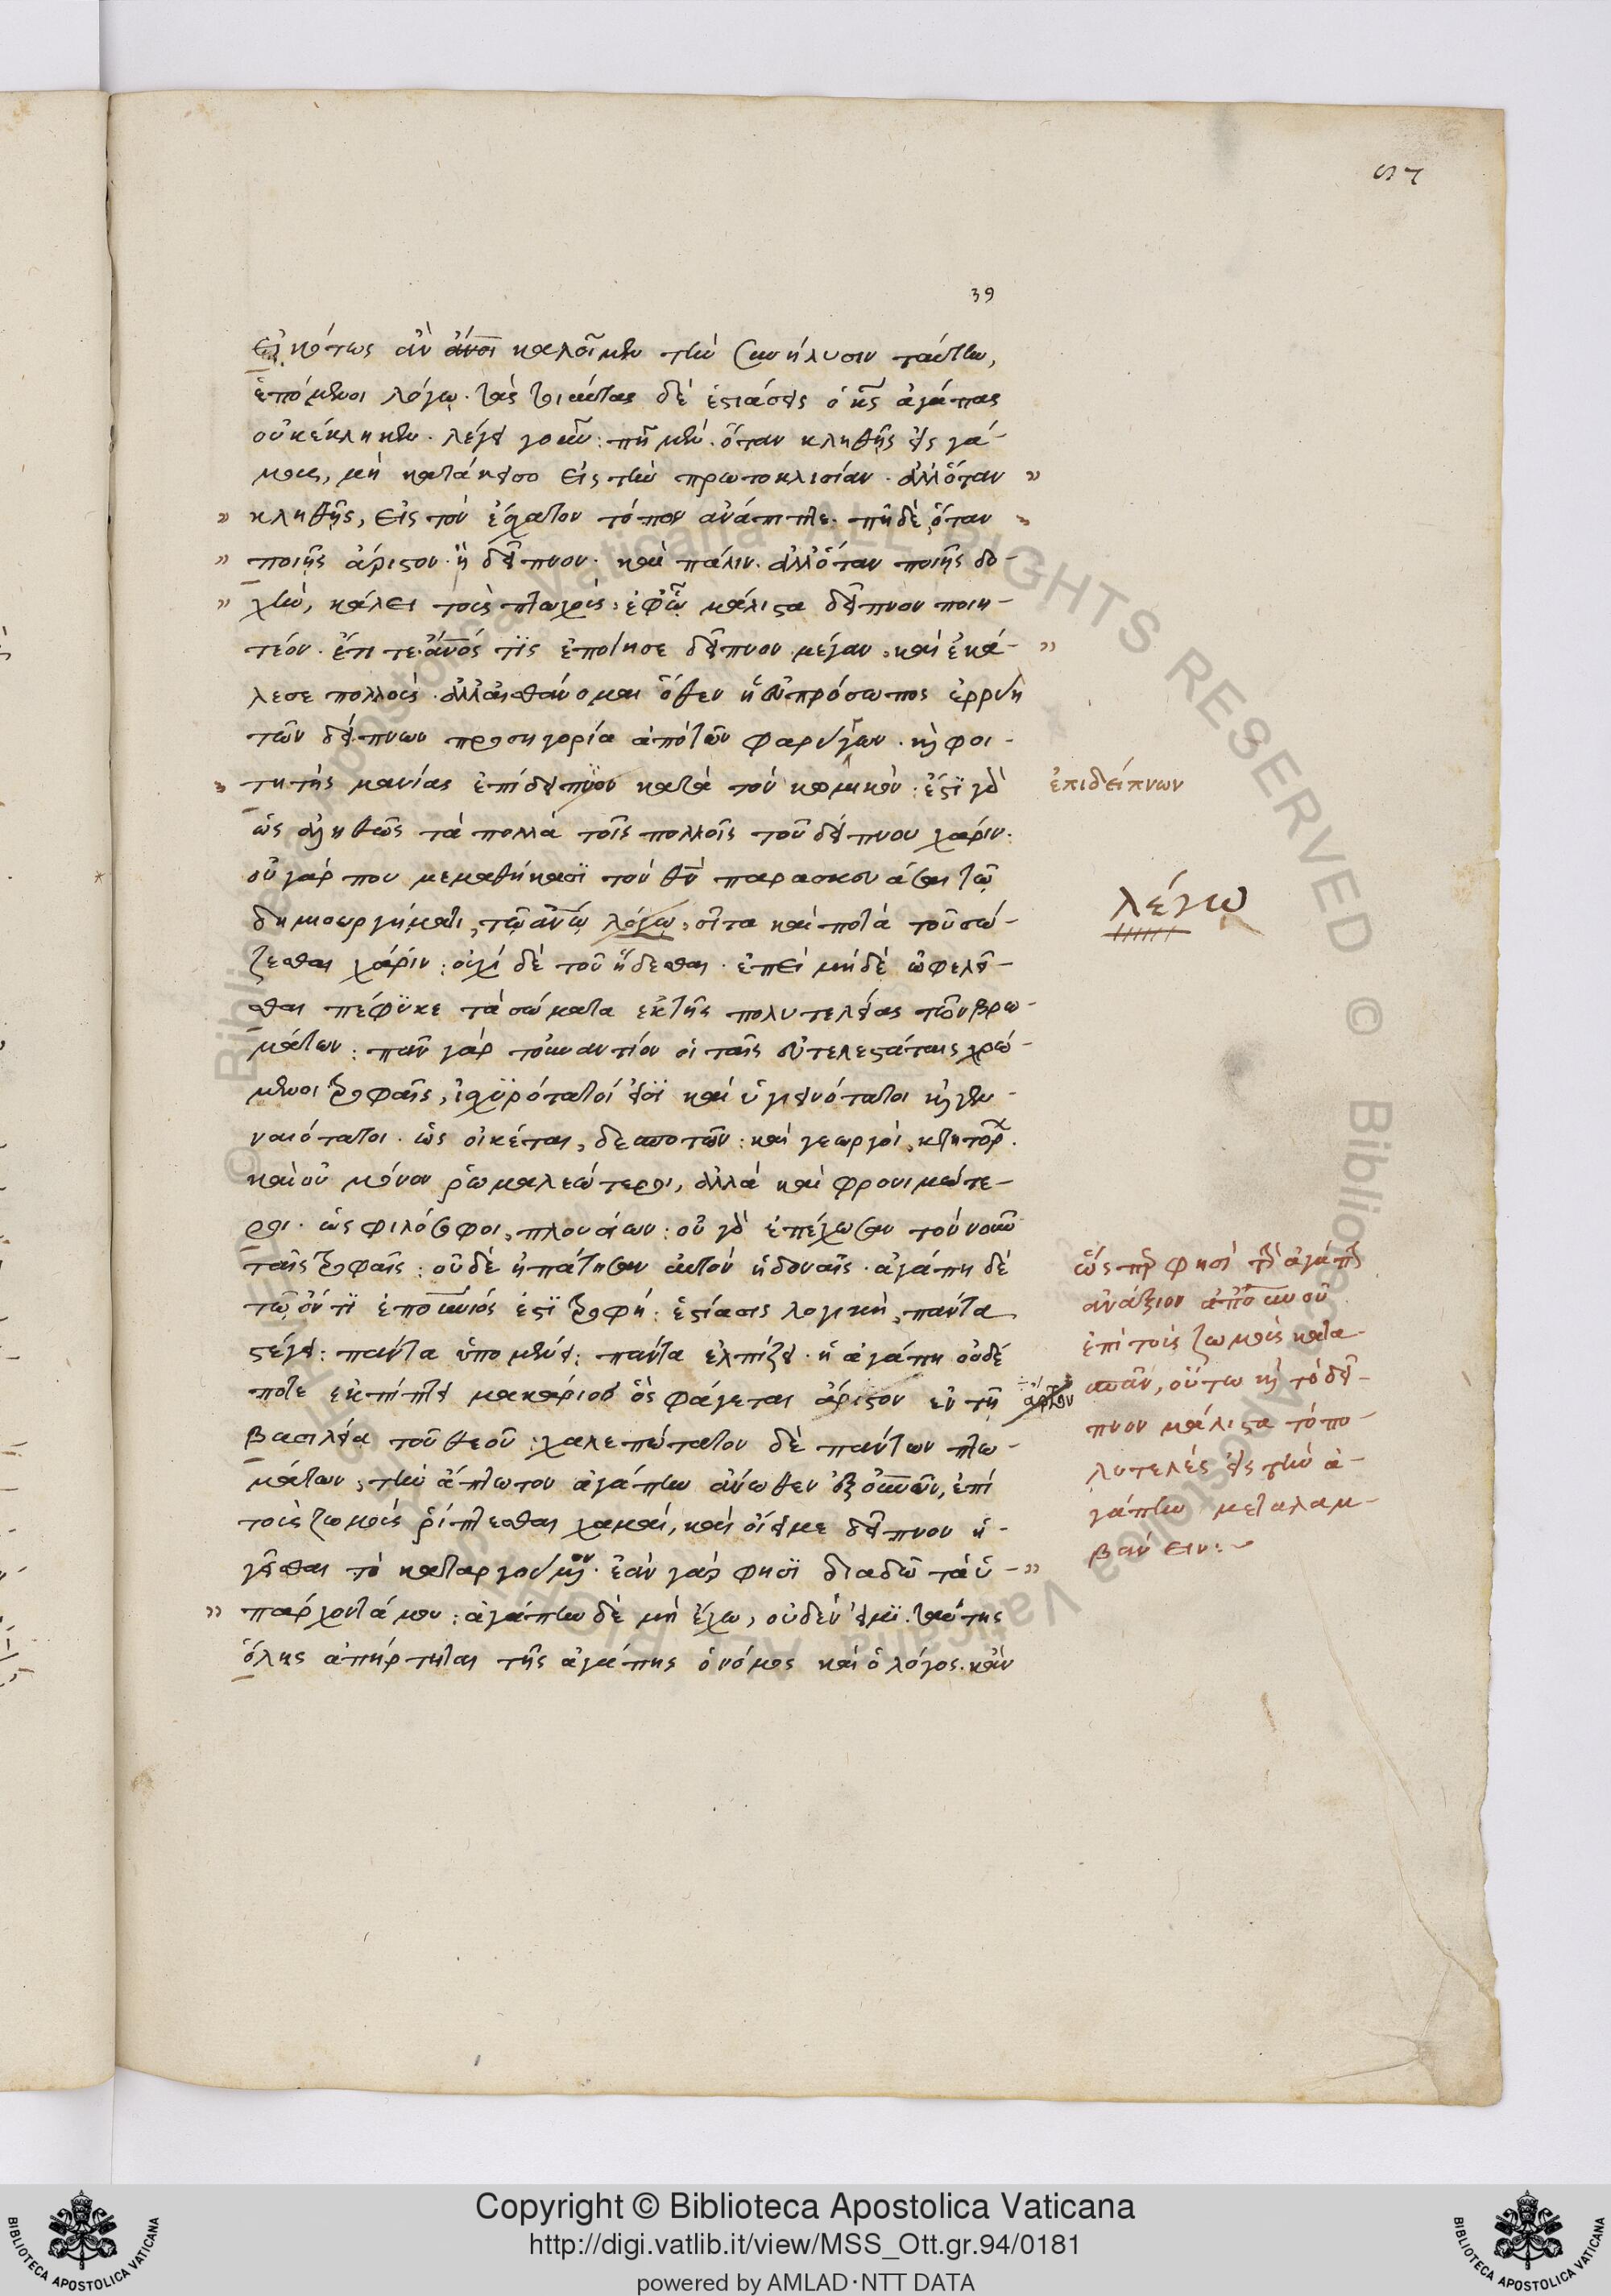 39
εἰκότως ἂν ἄνοι καλοῖμεν τὴν συνήλυσιν ταύτην,
ἑπόμενοι λόγῳ. τὰς τοιαύτας δὲ ἑστιάσεις ὁ κς ἀγάπας
οὐ κέκληκεν. λέγει γοῦν: πῆ μὲν. ὅταν κληθῆς εἰς γά-
μους, μὴ κατάκεισο εἰς τὴν πρωτοκλισίαν. ἀλλ' ὅταν
κληθῆς, εἰς τὸν ἔσχατον τόπον ἀνάπιπτε. πῆ δὲ, ὅταν
ποιῆς ἄριστον ἢ δεῖπνον. καὶ πάλιν. ἀλλ' ὅταν ποιῆς δο-
χὴν, κάλει τοὺς πτωχούς: ἐφ' ᾧ μάλιστα δεῖπνον ποιη-
τέον. ἔτι τε ἄνος τὶς ἐποίησε δεῖπνον μέγαν, καὶ ἐκά-
λεσε πολλούς. ἀλλ' αἰσθάνομαι ὅθεν ἡ εὐπρόσωπος ἐρρύη
τῶν δείπνων προσηγορία ἀπὸ τῶν φαρύγγων. καὶ φοι-
τητῆς μανίας ἐπίδειπνον κατὰ τὸν κωμικὸν: ἐστὶ γὰρ
ἐπιδείπνων
ὡς ἀληθῶς τὰ πολλὰ τοῖς πολλοῖς τοῦ δείπνου χάριν.
οὐ γάρ που μεμαθήκασι τὸν θν παρασκευάσαι τῷ
δημιουργήματι, τῷ ἀνω λόγῳ, σῖτα καὶ ποτὰ τοῦ σώ-
λέγω
ζεσθαι χάριν: οὐχὶ δὲ τοῦ ἥδεσθαι. ἐπεὶ μηδὲ ὠφελεῖ-
σθαι πέφυκε τὰ σώματα ἐκ τῆς πολυτελείας τῶν βρω-
μάτων: πᾶν γὰρ τοὐναντίον οἱ ταῖς εὐτελεστάταις χρώ-
μενοι τροφαῖς, ἰσχυρότατοί εἰσι καὶ ὑγιεινότατοι καὶ γεν-
ναιότατοι. ὡς οἰκέται, δεσποτῶν: καὶ γεωργοὶ, κτητόρ.
καὶ οὐ μόνον ῥωμαλεώτεροι, ἀλλὰ καὶ φρονιμώτε-
ροι. ὡς φιλόσοφοι, πλουσίων: οὐ γὰρ ἐπέχωσαν τὸν νοῦν
ταῖς τροφαῖς: οὐδὲ ἠπάτησαν αὐτὸν ἡδοναῖς. ἀγάπη δὲ
τῷ ὄντι ἐπουνιός ἐστι τροφὴ: ἑστίασις λογικὴ, πάντα
στέγει: πάντα ὑπομένει: πάντα ἐλπίζει. ἡ ἀγάπη οὐδέ
ποτε ἐκπίπτει μακάριος ὃς φάγεται ἄριστον ἐν τῇ
ἄρτον
βασιλείᾳ τοῦ θεοῦ: χαλεπώτατον δὲ πάντων πτω-
μάτων, τὴν ἄπτωτον ἀγάπην ἄνωθεν ἐξ οὐνῶν, ἐπὶ
τοὺς ζωμοὺς ῥίπτεσθαι χαμαὶ, καὶ οἴει με δεῖπνον ἡ-
γεῖσθαι τὸ καταργούμενον. ἐὰν γάρ φησι διαδῶ τὰ ὑ-
πάρχοντά μου: ἀγάπην δὲ μὴ ἔχω, οὐδέν εἰμι. ταύτης
ὅλης ἀπήρτηται τῆς ἀγάπης ὁ νόμος καὶ ὁ λόγος. κἂν
ὥσπερ φησὶ τὴν ἀγάπην
ἀνάξιον ἀπὸ ουνοῦ
ἐπὶ τοὺς ζωμοὺς κατα-
σπᾶν, οὕτω καὶ τὸ δεῖ-
πνον μάλιστα τὸ πο-
λυτελὲς εἰς τὴν ἀ-
γάπην μεταλαμ-
βάνειν:
Copyright © Biblioteca Apostolica Vaticana
http://digi.vatlib.it/view/MSS_Ott.gr.94/0181
powered by AMLAD·NTT DATA